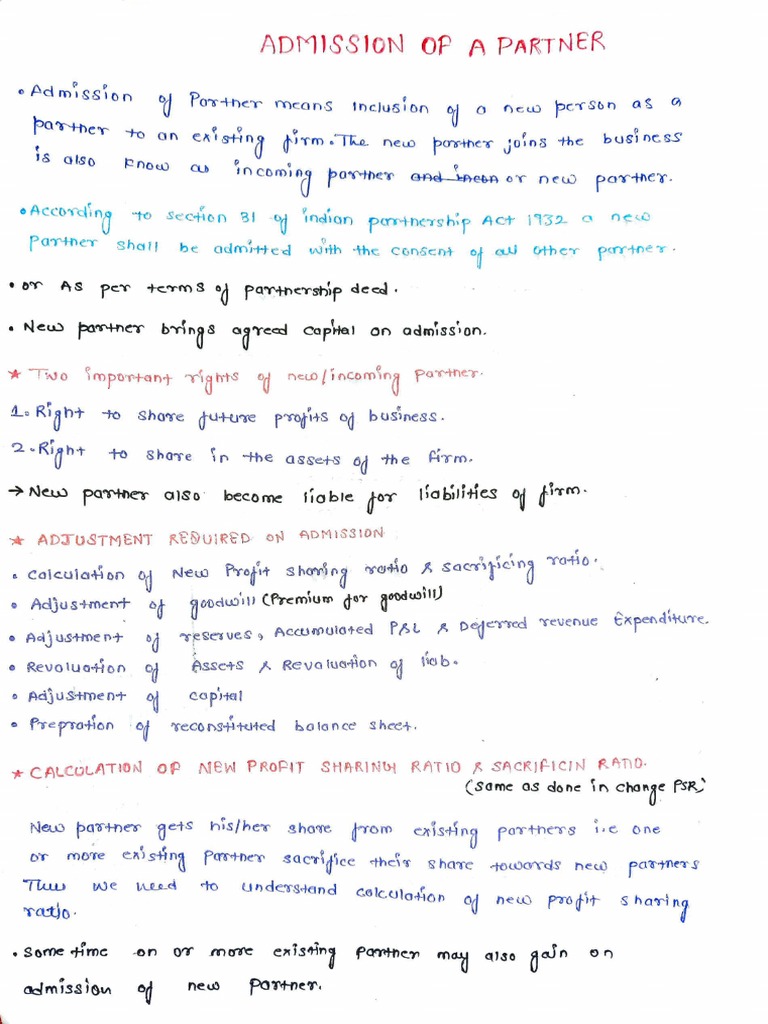 ADMISSION OF A PARTNER
• Admission of Partner means inclusion of a new person as a
partner to an existing firm. The new partner joins the business
is also know as incoming partner or new partner.
• According to section 31 of indian partnership Act 1932 a new
Partner shall be admitted with the consent of all other partner.
• or As per terms of partnership deed.
• New partner brings agreed capital on admission.
* Two important rights of new/incoming partner.
1. Right to share future profits of business.
2. Right to share in the assets of the firm.
→ New partner also become liable for liabilities of firm.
* ADJUSTMENT REQUIRED ON ADMISSION
• Calculation of New Profit sharing ratio & sacrificing ratio.
• Adjustment of goodwill (Premium for goodwill)
• Adjustment of reserves, Accumulated P&L & Deferred revenue Expenditure.
• Revaluation of Assets & Revaluation of liab.
• Adjustment of capital
• Prepration of reconstituted balance sheet.
* CALCULATION OF NEW PROFIT SHARING RATIO & SACRIFICIN RATIO.
(same as done in change PSR)
New partner gets his/her share from existing partners i.e one
or more existing Partner sacrifice their share towards new partners
Thus we need to understand calculation of new profit sharing
ratio.
• some time on or more existing Partner may also gain on
admission of new Partner.